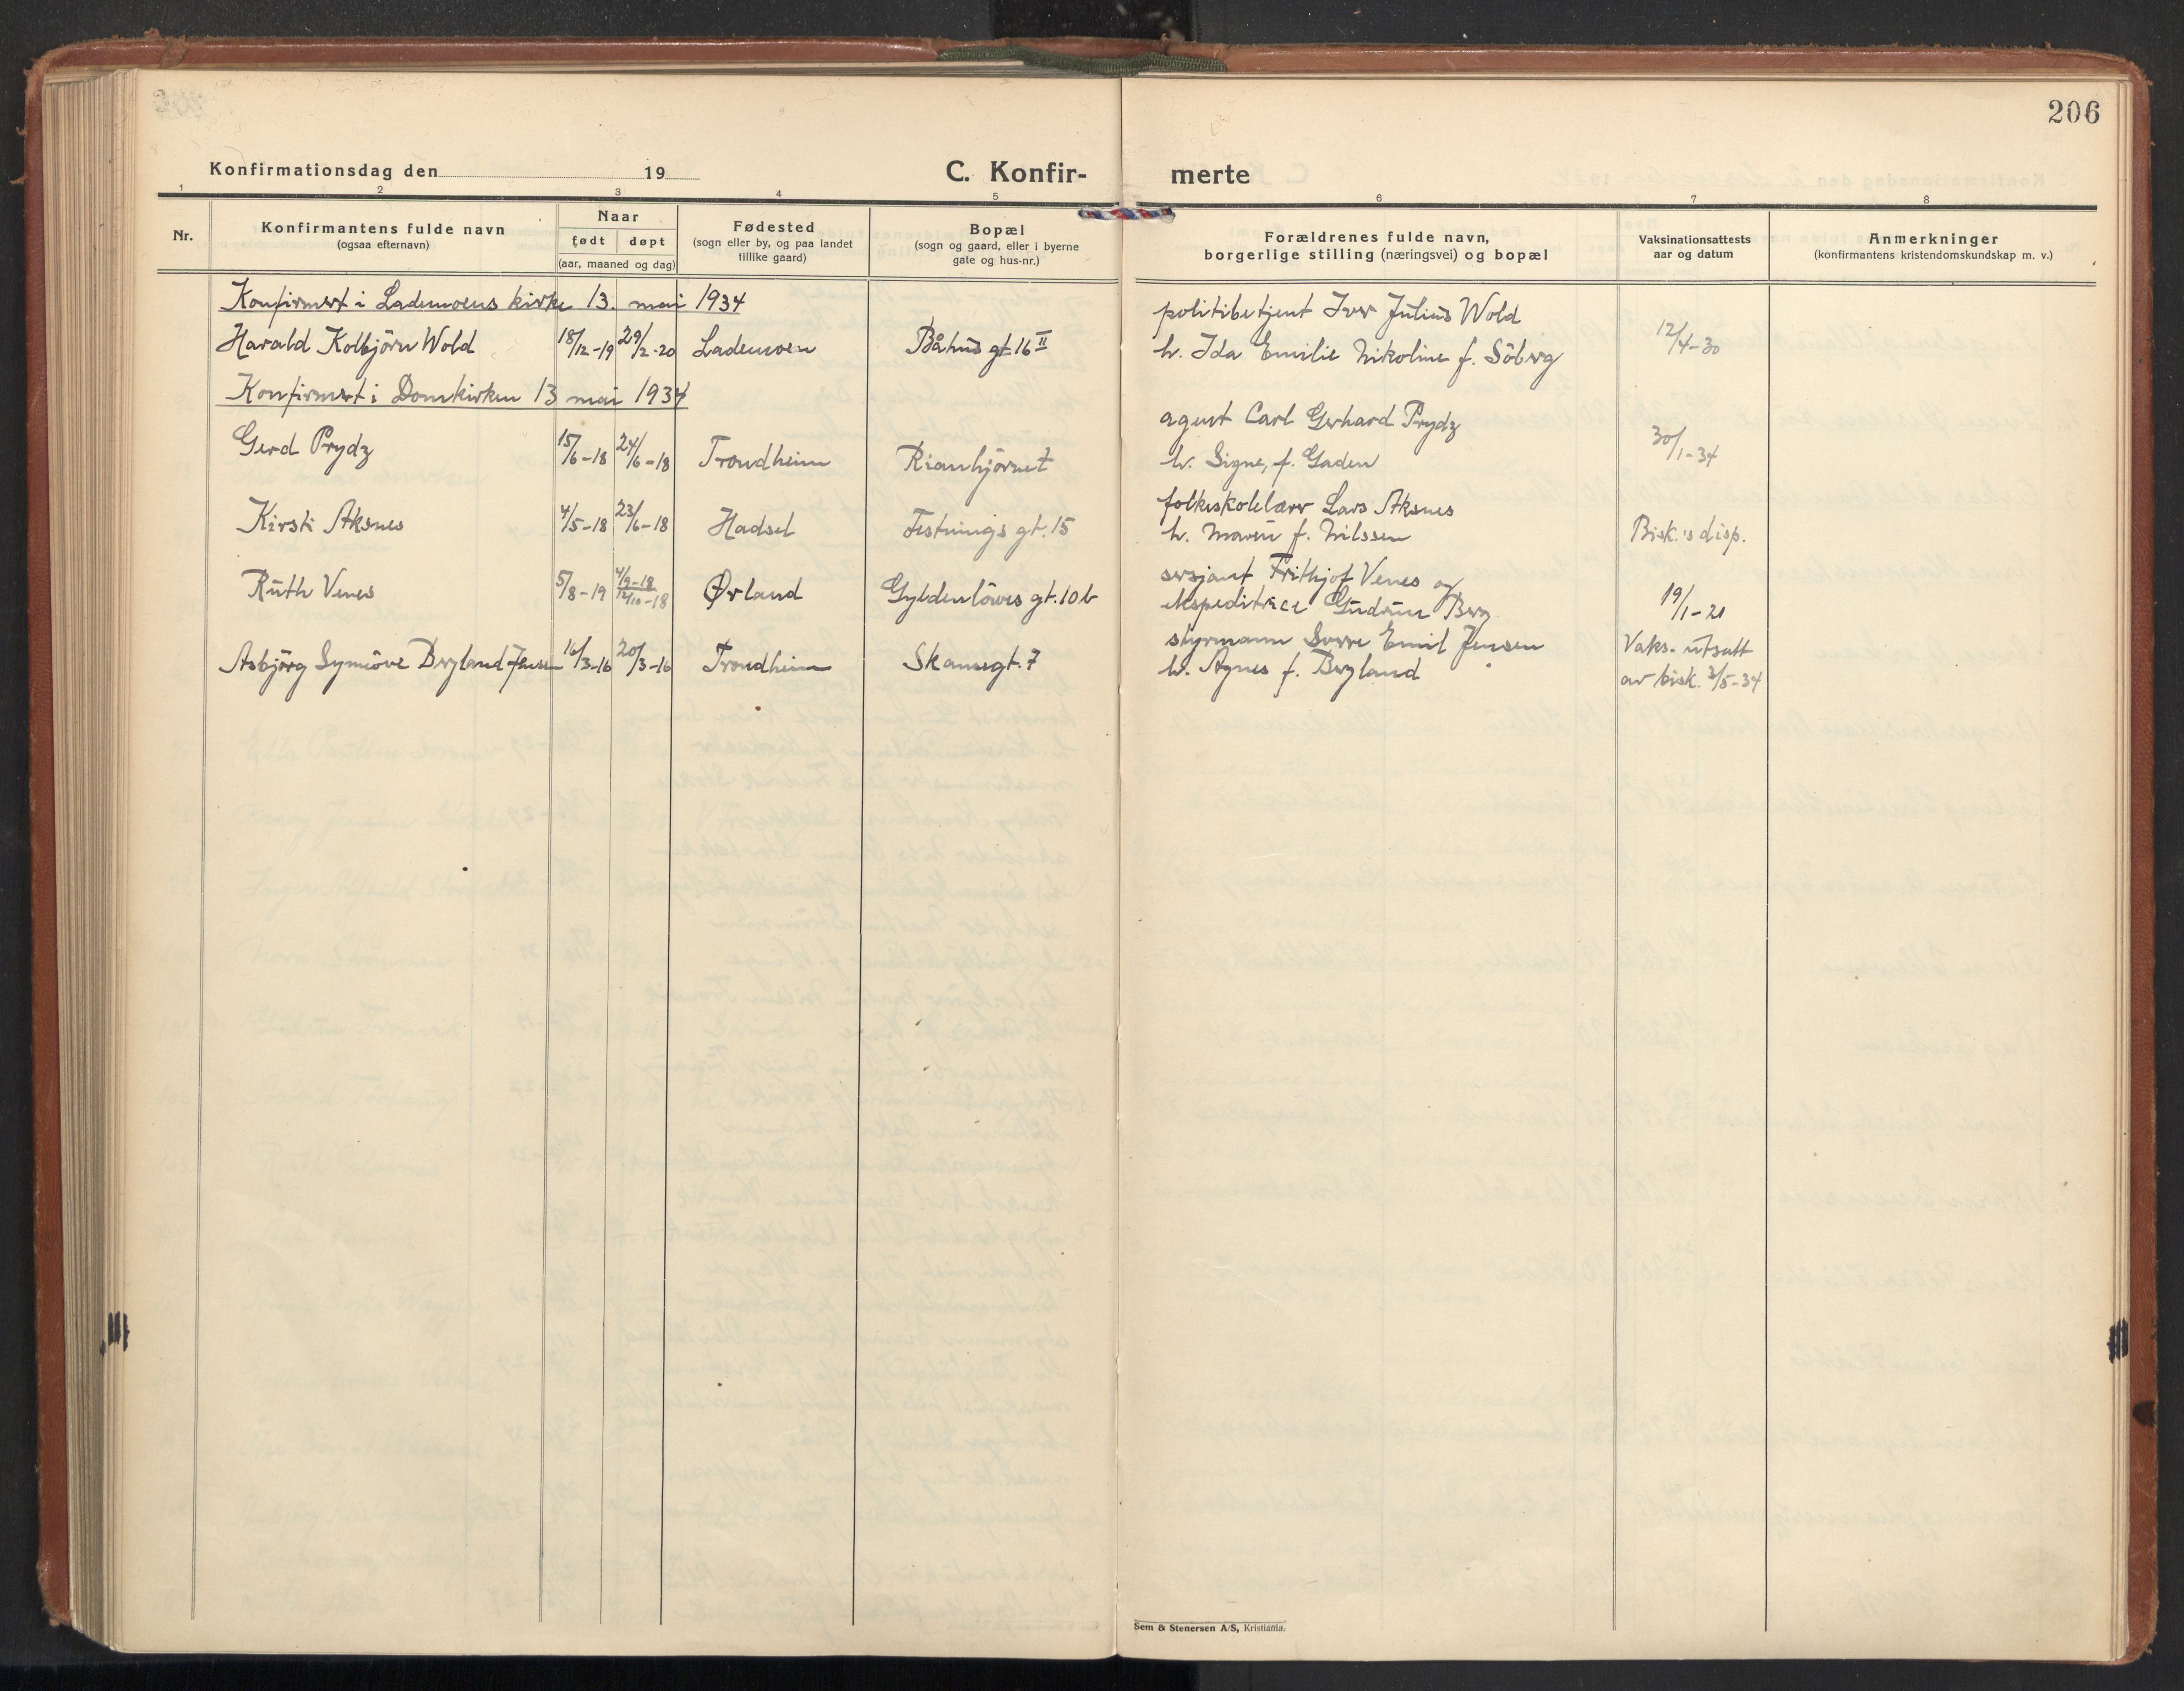 206
Konfirmationsdag den 19
C. Konfir-merte
1 2 3 4 5 6 7 8
Nr.
Konfirmantens fulde navn
(ogsaa efternavn)
Naar
født døpt
(aar, maaned og dag)
Fødested
(sogn eller by, og paa landet
tillike gaard)
Bopæl
(sogn og gaard, eller i byerne
gate og hus-nr.)
Forældrenes fulde navn,
borgerlige stilling (næringsvei) og bopæl
Vaksinationsattests
aar og datum
Anmerkninger
(konfirmantens kristendomskundskap m. v.)
Konfirmert i Lademoens kirke 13. mai 1934
Harald Kolbjörn Wold 18/12-19 29/2-20 Lademoen Båhus gt. 16 II
politibetjent Iver Julius Wold
h. Ida Emilie Nikoline f. Söberg
12/4-30
Konfirmert i Domkirken 13 mai 1934
Gerd Prydz 15/6-18 24/6-18 Trondheim Rianhjörnet
agent Carl Gerhard Prydz
h. Signe, f. Gaden
30/1-34
Kirsti Aksnes 4/5-18 23/6-18 Hadsel Festnings gt. 15
folkeskolelærer Lars Aksnes
h. Maren f. Nilssen
Bisk.'s disp.
Ruth Venes 5/8-19 4/9-18 12/10-18 Ørland Gyldenlöves gt. 10 b
sersjant Frithjof Venes og
ekspeditrice Gudrun Berg
19/1-21
Asbjörg Synnöve Bergland Jensen 16/3-16 20/3-16 Trondheim Skansegt. 7
styrmann Sverre Emil Jensen
h. Agnes f. Bergland
Vaks. utsatt
av bisk. 3/5-34
Sem & Stenersen A/S, Kristiania.